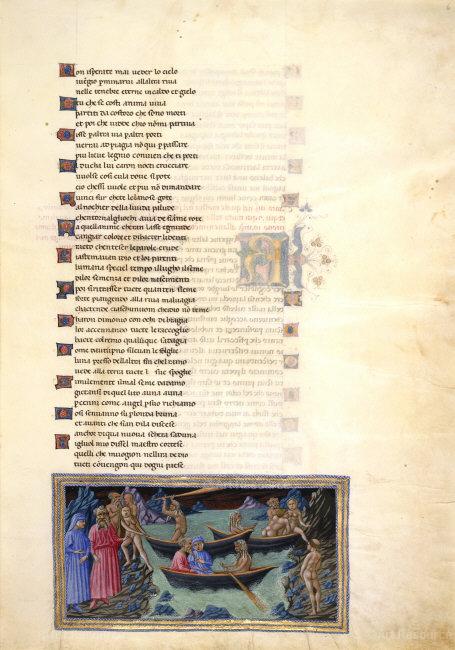 Non isperate mai ueder lo cielo
i uegno p menarui allaltra riua
nelle tenebre eterne in caldo et gielo
Et tu che se costi anima uiua
parti da costoro che sono morti
et poi che uidde chio nõ mi partiua
Disse p altra uia p altri porti
uerrai ad piagia nõ qui p passare
piu lieue legnio conuien che ti porti
El ducha lui caron non ti crucciare
uuolsi cosi cola doue si pote
cio chessi uuole et piu nõ dimandare
Quinci fur chete lelanose gote
al nochier della liuida palude
chentornalgliochi auia di fiãme rote
Ma quellanime cheran lasse et gniude
cangiar colore et dibacter li denti
ratto chenteser leparole crude
Bastemiauan idio et lor parenti
lumana spetie l tempo illuogho ilseme
di lor semenza et di lor nascimenti
Poi si ritrasser tucte quante insieme
forte piangendo alla riua maluagia
chactende ciaschun huom che dio nõ teme
Caron dimonio con ochi di bragia
loro accennando tucte le raccoglie
bacte col remo qualũque sadagia
Come dautũpno si leuan le foglie
luna presso dellaltra fin chel ramo
uede alla terra tucte le sue spoglie
Similemente il mal seme dadamo
gictansi di quel lito ad una ad una
p cenni come augel p suo richiamo
Cosi sen uanno su p londa bruna
et auanti che sian di la discese
anchor di qua nuoua schiera saduna
Figluol mio disse l maestro cortese
quelli che muoion nellira de dio
tucti conuengon qui dogni paese